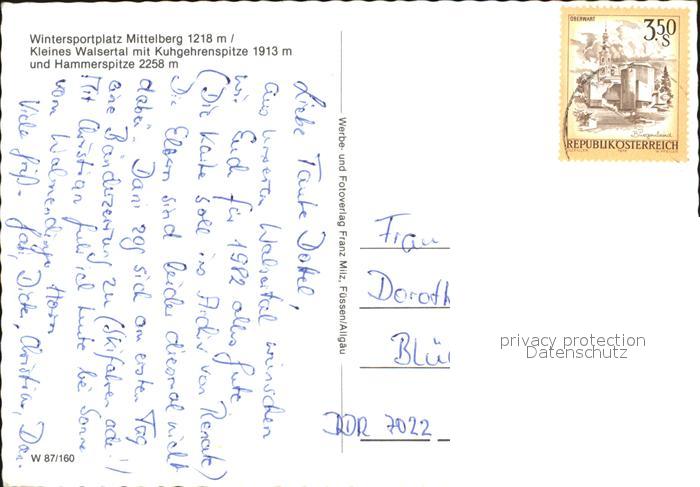 Wintersportplatz Mittelberg 1218 m /
Kleines Walsertal mit Kuhgehrenspitze 1913 m
und Hammerspitze 2258 m
Liebe Tante Dottel,
aus unserem Walsertal wünschen
wir Euch für 1982 alles Gute
(Die Karte soll ins Archiv von Renate)
Die Eltern sind leider diesmal nicht
dabei. Dani zog sich am ersten Tag
eine Bänderzerrung zu (Skifahren ade!)
Mit Christian fuhr ich heute bei Sonne
vom Walmendinger Horn
Viele Grüße Gabi, Dieter, Christian, Dani
W 87/160
Werbe- und Fotoverlag Franz Milz, Füssen/Allgäu
OBERWART
3,50 S
Burgenland
REPUBLIK ÖSTERREICH
Frau
Doroth
Blü
DDR 7022
privacy protection
Datenschutz